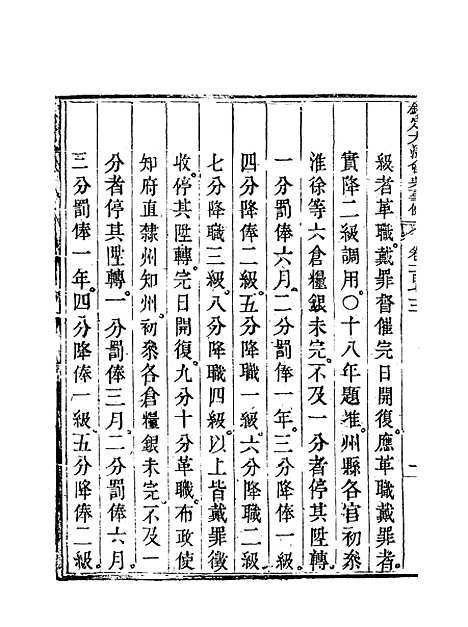 級者革職戴罪督催完日開復應革職戴罪者
實降二級調用〇十八年題准州縣各官初叅
淮徐等六倉糧銀未完不及一分者停其陞轉
一分罰俸六月二分罰俸一年三分降俸一級
四分降俸二級五分降職一級六分降職二級
七分降職三級八分降職四級以上皆戴罪徵
收停其陞轉完日開復九分十分革職布政使
知府直隸州知州初叅各倉糧銀未完不及一
分者停其陞轉一分罰俸三月二分罰俸六月
三分罰俸一年四分降俸一級五分降俸二級